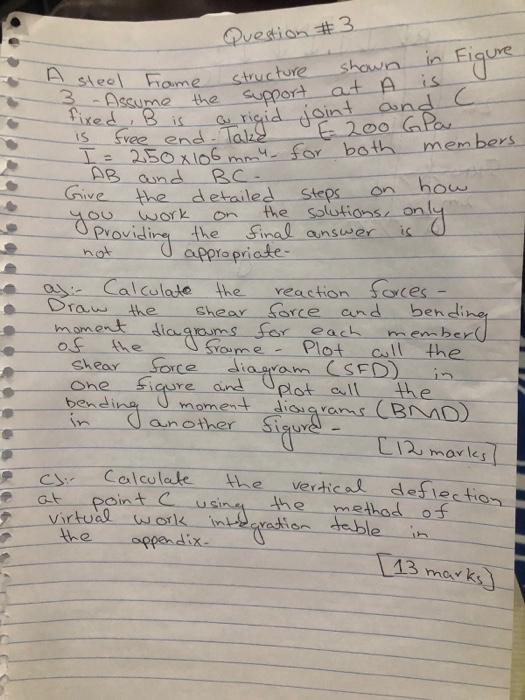 Question #3
A steel Frame structure shown in Figure
3 - Assume the support at A is
fixed, B is a rigid joint and C
is free end. Take E= 200 GPa
I = 250 x106 mm4- for both members
AB and BC-
Give the detailed steps on how
you work on the solutions, only
providing the final answer is
not appropriate-
a):- Calculate the reaction forces -
Draw the shear force and bending
moment diagrams for each member
of the frame - Plot all the
shear force diagram (SFD) in
one figure and plot all the
bending moment diagrams (BMD)
in another figure -
[12 marks]
c):- Calculate the vertical deflection
at point C using the method of
virtual work integration table in
the appendix-
[13 marks]